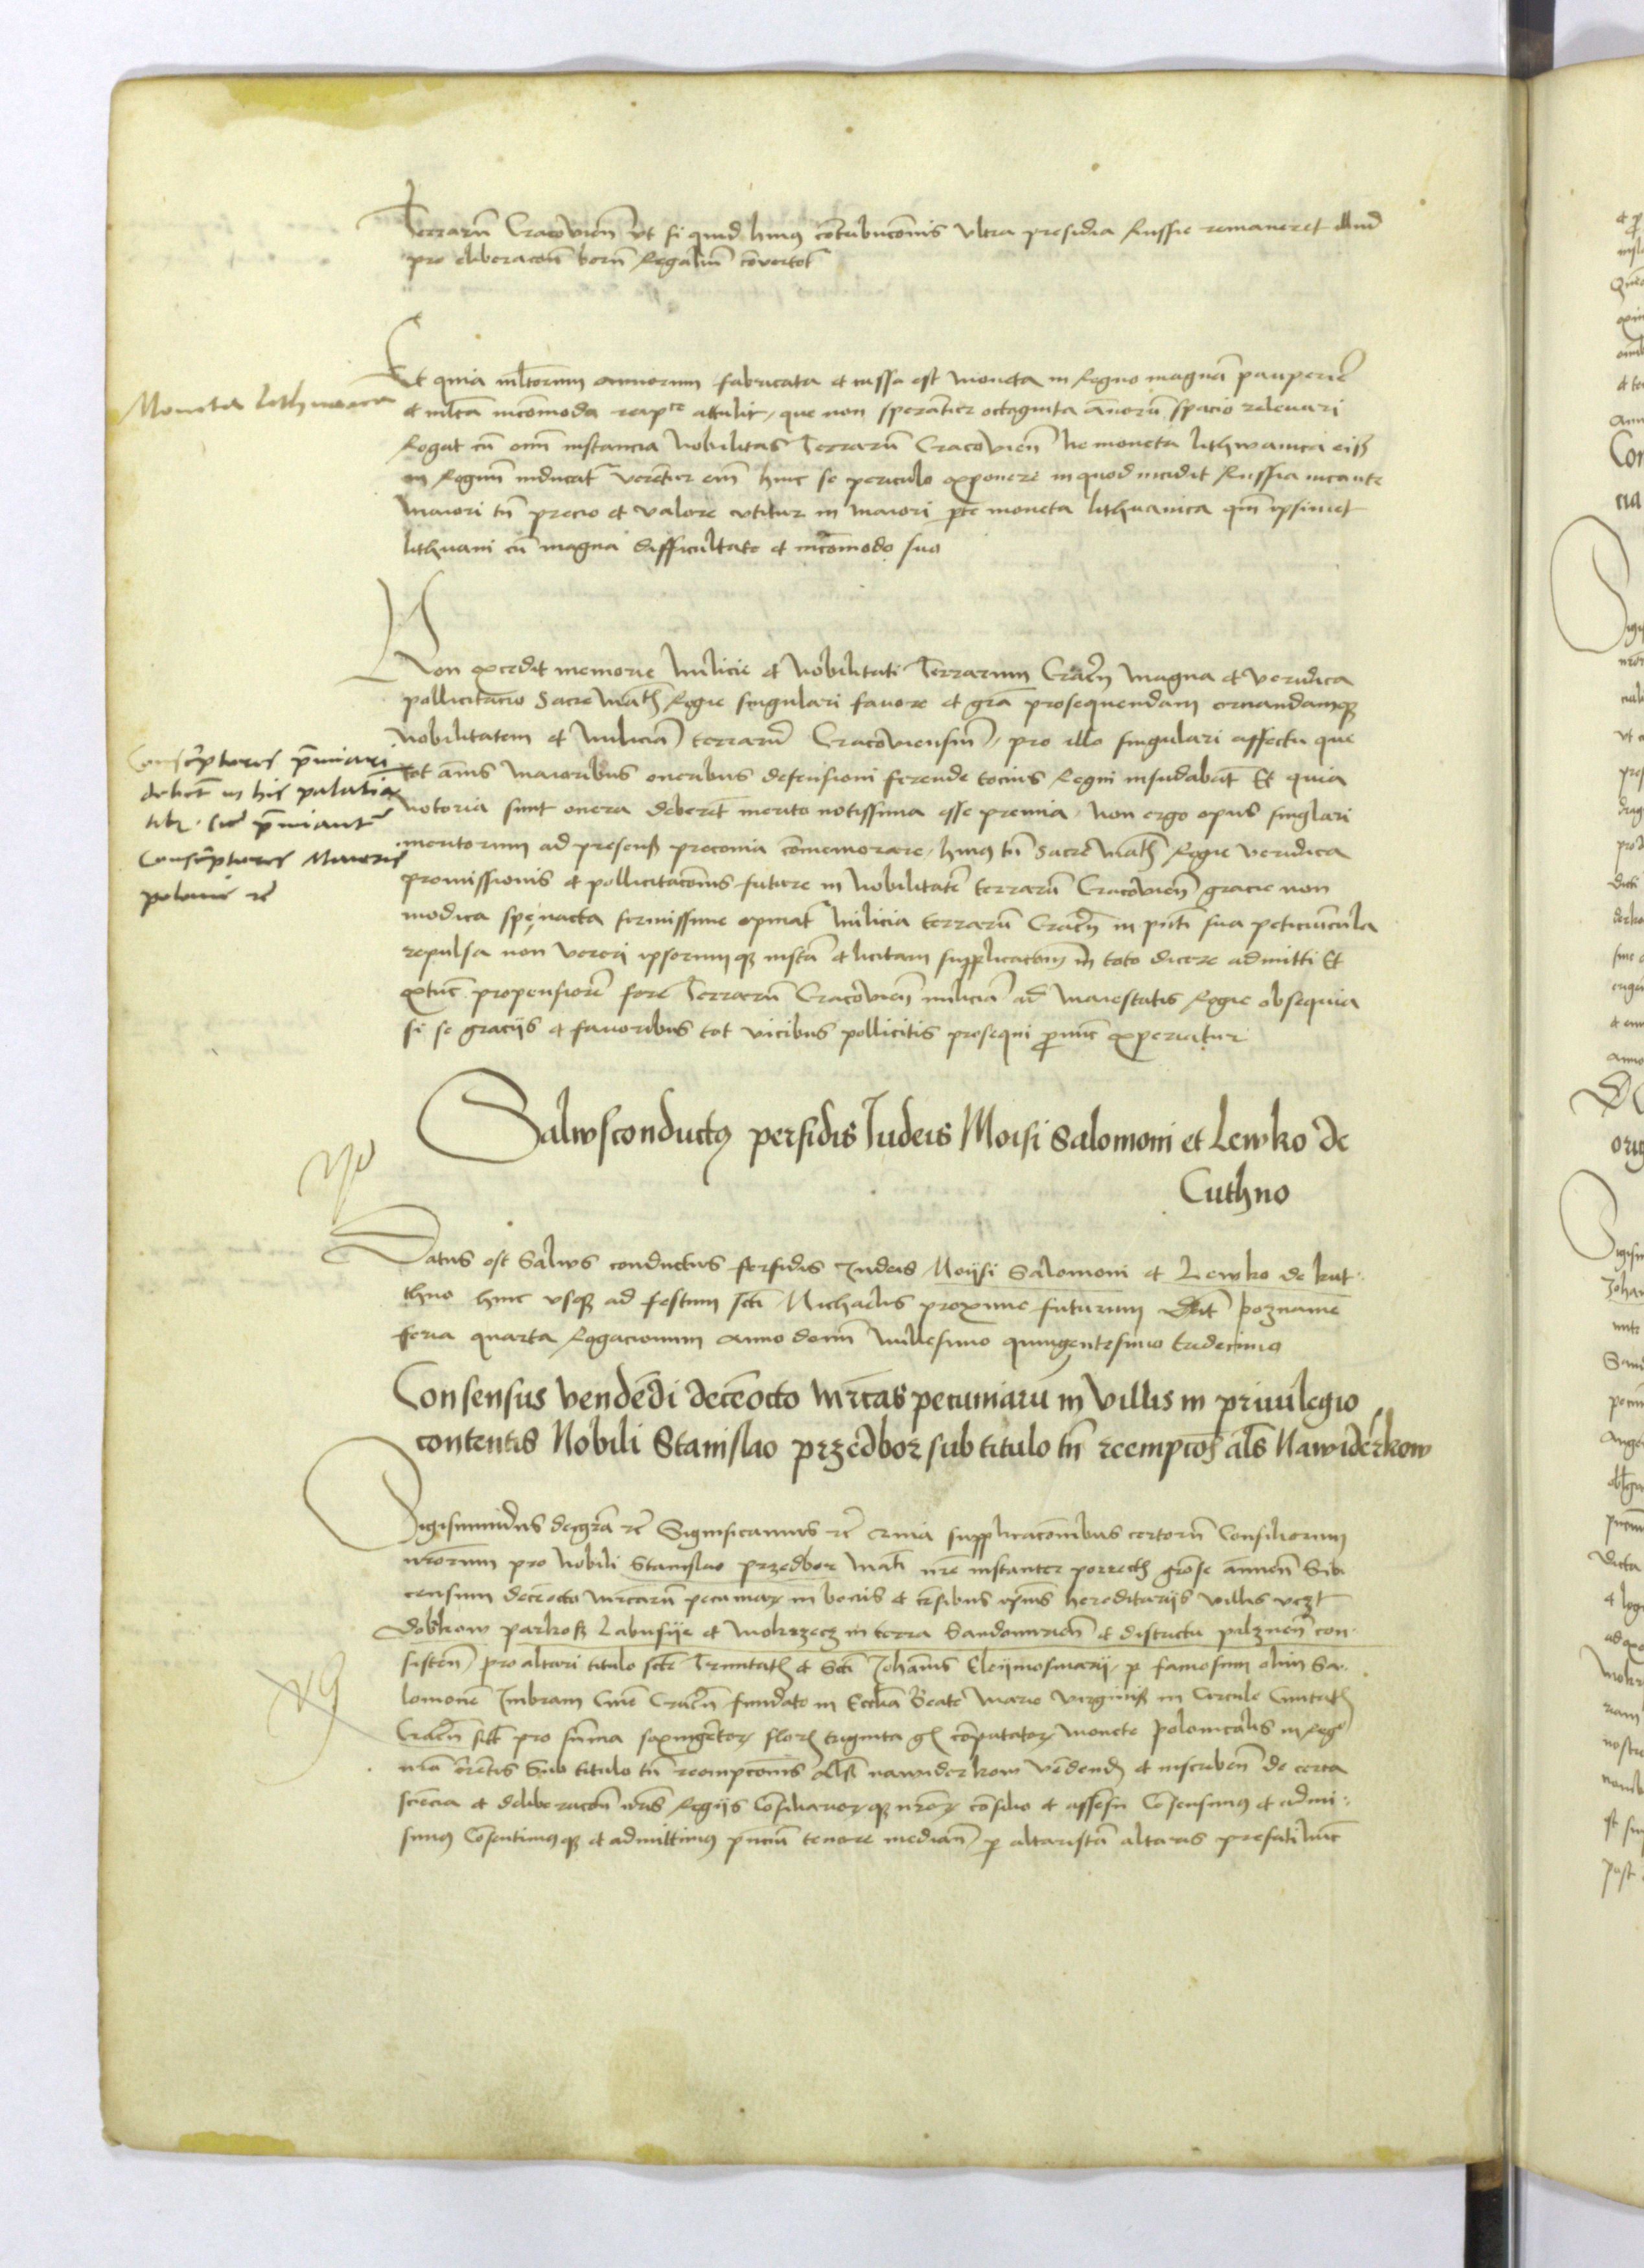 Terrarū Cracovien̄ vt si quid huiꝰ cōtribucōnis vltra presidia Russie remaneret illud
pro liberacōn̄ bonoꝝ Regaliū cōvertet̄
Moneta lithuanica
Et quia ml̄torum annorum fabricata et cussa est moneta in Regno magnā pauperiē
et ml̄ta incōmoda attulit, que non sperāt̄ octoginta ānorū spacio relevari
Rogat cū om̄i instancia Nobilitas Terrarū Cracovien̄ ne moneta lithwanica eis
in Regnū inducat̄ veret̄ em̄ hinc se periculo exponere in quod incidit Russia incaute
maiori tn̄ precio et valore vtitur in maiori pte moneta lithuanica qm̄ ipsimet
lithuani cū magna difficultate et incōmodo suo
Non excedit memorie Milicie et Nobilitati Terrarum Cracn̄ magna et veridica
pollicitacio Sacre Mat̄ Regie singulari favore et grā prosequendam ornandamqꝫ
Nobilitatem et Miliciā terrarū Cracoviensiū, pro illo singulari affectu que
tot ānis maioribus oneribus defensioni ferende tocius Regni insudabāt Et quia
notoria sunt onera deberēt merito notissima esse premia, non ergo opus singlari
meritorum ad presens preconia cōmemorare, huiꝰ tn̄ Sacre Mat̄ Regie veridica
promissionis et pollicitacōnis future in Nobilitatē terrarū Cracovien̄ gracie non
modica spe nacta firmissime opinat̄ Milicia terrarū Cracn̄ in pn̄ti sua peticiūcula
repulsa non vereri ipsorumqꝫ iustā et licitam supplicacōnem in toto dicere admitti Et
extūc propensiorē fore Terrarū Cracovien̄ miliciā ad Maiestatis Regie obsequia
si se gracijs et favoribus tot vicibus pollicitis prosequi pronūc experiatur
Conscriptores p̄miari
debēt in his palatia
tibꝫ sic p̄miant̄
Conscriptores Maioris
polonie rē
Salwsconductꝰ perfidis Iudeis Moisi Salomoni et Lewko de
Cuthno
Datus est Salws conductus perfidis Iudeis Moijsi Salomoni et Lewko de kut
thno hinc vsqꝫ ad festum sct̄i Michaelis proxime futurum Dat̄ Poznanie
feria quarta Rogacionum Anno domī Millesimo quingentesimo tredecimo
Consensus vendēdi decēocto mrcas pecuniarū in villis in priuilegio
contentis Nobili Stanislao przedbor sub titulo tn̄ reempcōis al̄s Nawiderkow
Sigismundus dei grā rē Significamus rē Quia supplicacōnibus certorū Consiliorum
nrōrum pro Nobili Stanislao przedbor Mat̄i nrē instanter porrect̄ grōse ānuen̄ Sibi
censum decēocto mrcarū pecuniaꝝ in bonis et cēsibus ip̄ius hereditarijs villis vczt
Dobkow parkosz Labusije et Mokrzecz in terra Sandomirien̄ et districtu pilznen̄ con
sisten̄ pro altari titulo scte Trinitat̄ et Scti Johānis Eleijmosinarij, p famosum olim Sa
lomonē Imbram Civē Cracn̄ fundato in Ecclīa Beate Marie virginis in Circulo Civitat̄
Cracn̄ sitt̄ pro sūma sexingētoꝝ floꝝ triginta gs cōputatoꝝ Monete polonicalis in Regno
Sub titulo tn̄ reempcōnis als nawiderkow vēdend̄ et inscriben̄ de certa
sciēcia et deliberacōn̄ nrīs Regijs Cōsiliarioꝝ qꝫ nrōꝝ cōsilio et assēsu Cōsensimꝰ et admi
simꝰ Cōsentimus qꝫ et admittimꝰ pn̄ciū tenore median̄ p altaristā altaris prefati nūc